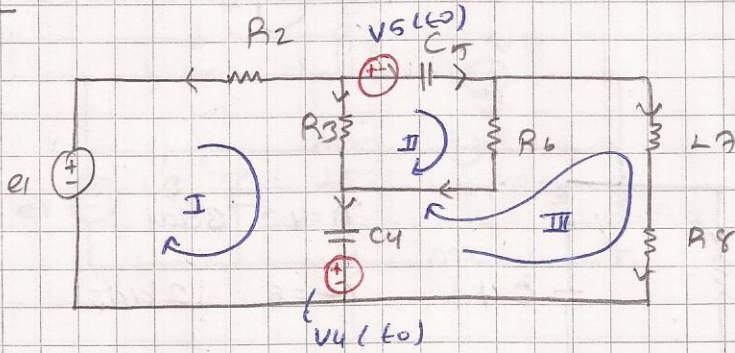 R2
V5(to)
C5
R3
II
R6
L7
e1
I
III
C4
R8
V4(to)